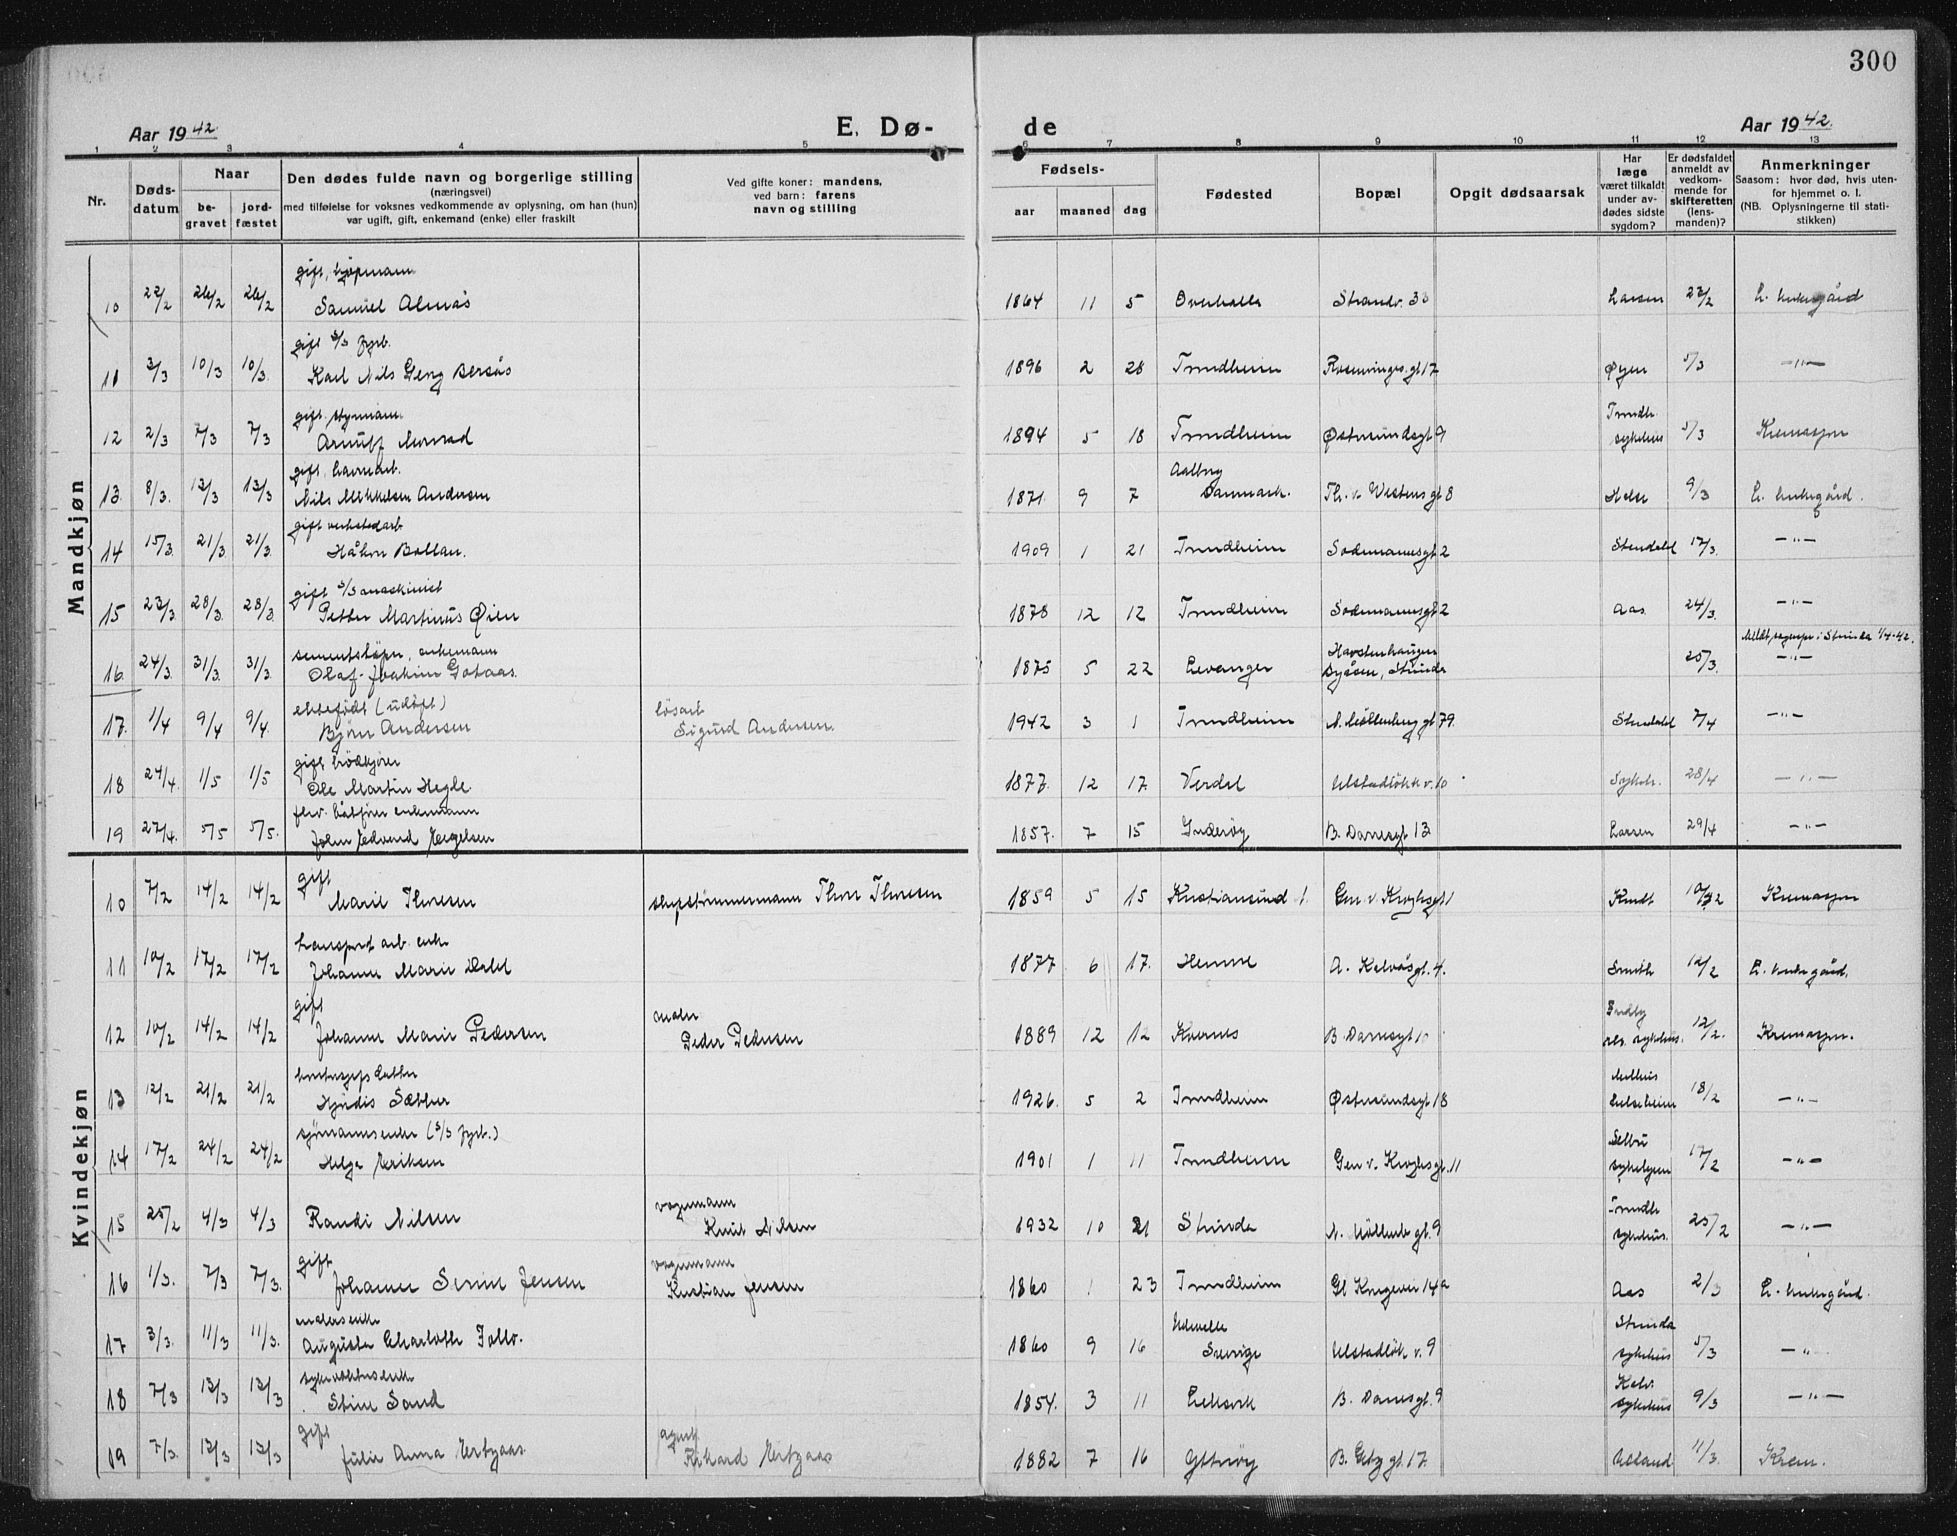 300
Aar 1942
E. Dø-
de
Aar 1942.
1 2 3 4 5 6 7 8 9 10 11 12 13
Nr.
Døds-
datum
Naar
be-
gravet
jord-
fæstet
Den dødes fulde navn og borgerlige stilling
(næringsvei)
med tilføielse for voksnes vedkommende av oplysning, om han (hun)
var ugift, gift, enkemand (enke) eller fraskilt
Ved gifte koner: mandens,
ved barn: farens
navn og stilling
Fødsels-
aar maaned dag
Fødested
Bopæl
Opgit dødsaarsak
Har
læge
været tilkaldt
under av-
dødes sidste
sygdom?
Er dødsfaldet
anmeldt av
vedkom-
mende for
skifteretten
(lens-
manden)?
Anmerkninger
Saasom: hvor død, hvis uten-
for hjemmet o. l.
(NB. Oplysningerne til stati-
stikken)
Mandkjøn
gift,
10 22/2 26/2 26/2 Samuel Almås 1864 11 5 Overhalla Strandv. 33 Larsen 23/2
gift s/s fyrb.
11 3/3 10/3 10/3. Karl Nils Bersås 1896 2 28 Trondheim Rosenvinges.gt 17 Øyen 5/3 —"—
gift. styrmann Trondh.
12 2/3 7/3 7/3 Arnulf 1894 5 18 Trondheim Østersundsgt 9 sykehus 5/3 Kremasjon
gift, havnearb. Aalborg
13. 8/3. 13/3 13/3 Nils Mikkelsen Andersen 1871. 9 7 Danmark. Th. v. Westens gt 8 9/3
gift verkstedarb
14 15/3. 21/3 21/3 Håkon Bollan. 1909 1 21 Trondheim Sodemannsgt 2 Stendahl 17/3. —"—
gift s/s maskinist
15 23/3. 28/3 28/3. Petter Martinus Øien 1878 12 12 Trondheim Sodemannsgt 2 Aas. 24/3. —"—
sementstøper, enkemann Havsteinhaugen Strinda 1/4-42.
16. 24/3. 31/3. 31/3. Olaf Joakim Gotaas. 1875 5 22 Levanger Strinda 25/3. —"—
ektefødt (udøpt) løsarb
17. 1/4 9/4 9/4. Bjørn Andersen Sigurd Andersen. 1942 3 1 Trondheim N. Møllenberg gt 79. Stendahl 7/4 —"—
gift brødkjører
18 24/4. 1/5 1/5 Ole Martin Hegle 1877. 12 17. Verdal Ulstadløkk v. 10 Sykeh. 28/4 —"—
fhv. båtfører enkemann
19 27/4. 5/5 5/5. John Edvard 1857. 7 15 Inderøy B. Danesgt 13 Larsen 29/4 —"—
Kvindekjøn
gift
10 7/2 14/2 14/2 Marie Thoresen skipstømmermann Thor Thoresen 1859 5 15 Kristiansund Gen v. Kroghsgt 1 10/2 Kremasjon
transport arb. enke
11 10/2 17/2 17/2 Johanne Marie Dahl 1877. 6 17. Hemne A. Kalvåsgt. 4. Smith 12/2
gift maler
12 10/2 14/2 14/2 Johanne Marie Pedersen Peder Pedersen 1889 12 12 Kvernes B. Danesgt sykehus. 12/2. Kremasjon.
datter
13 12/2 21/2 21/2 Hjørdis Sæther 1926. 5 2 Trondheim Østersundsgt 18 18/2 —"—
sjømannsenke (s/s fyrb.) Selbu
14 17/2 24/2 24/2 Helga Eriksen 1901 1 11 Trondheim Gen v. Kroghsgt. 11 17/2 —"—
vognmann Trondh
15 25/2 4/3 4/3 Randi Nilsen Knut Nilsen 1932 10 21 Strinda N. Møllenb gt. 9 sykehus. 25/2 —"—
gift vognmann
16 1/3. 7/3 7/3. Johanne Serine Jensen Kristian Jensen 1860 1 23 Trondheim Gl Kongevei 14a Aas 2/3
malersenke Uddevalla Strinda
17 3/3. 11/3 11/3. Augusta Charlotte 1860 9 16 Sverige Ulstadløk v. 9 sykehus 5/3 —"—
18 7/3 13/3 13/3 Stine Sand 1854. 3 11 Leksvik B. Danesgt. 9 sykehus 9/3 —"—
gift agent
19 7/3. 13/3 13/3 Julie Anna Ertzaas Rikard Ertzaas 1882 7 16 Ytterøy B. Getz gt. 17. 11/3. Krem.